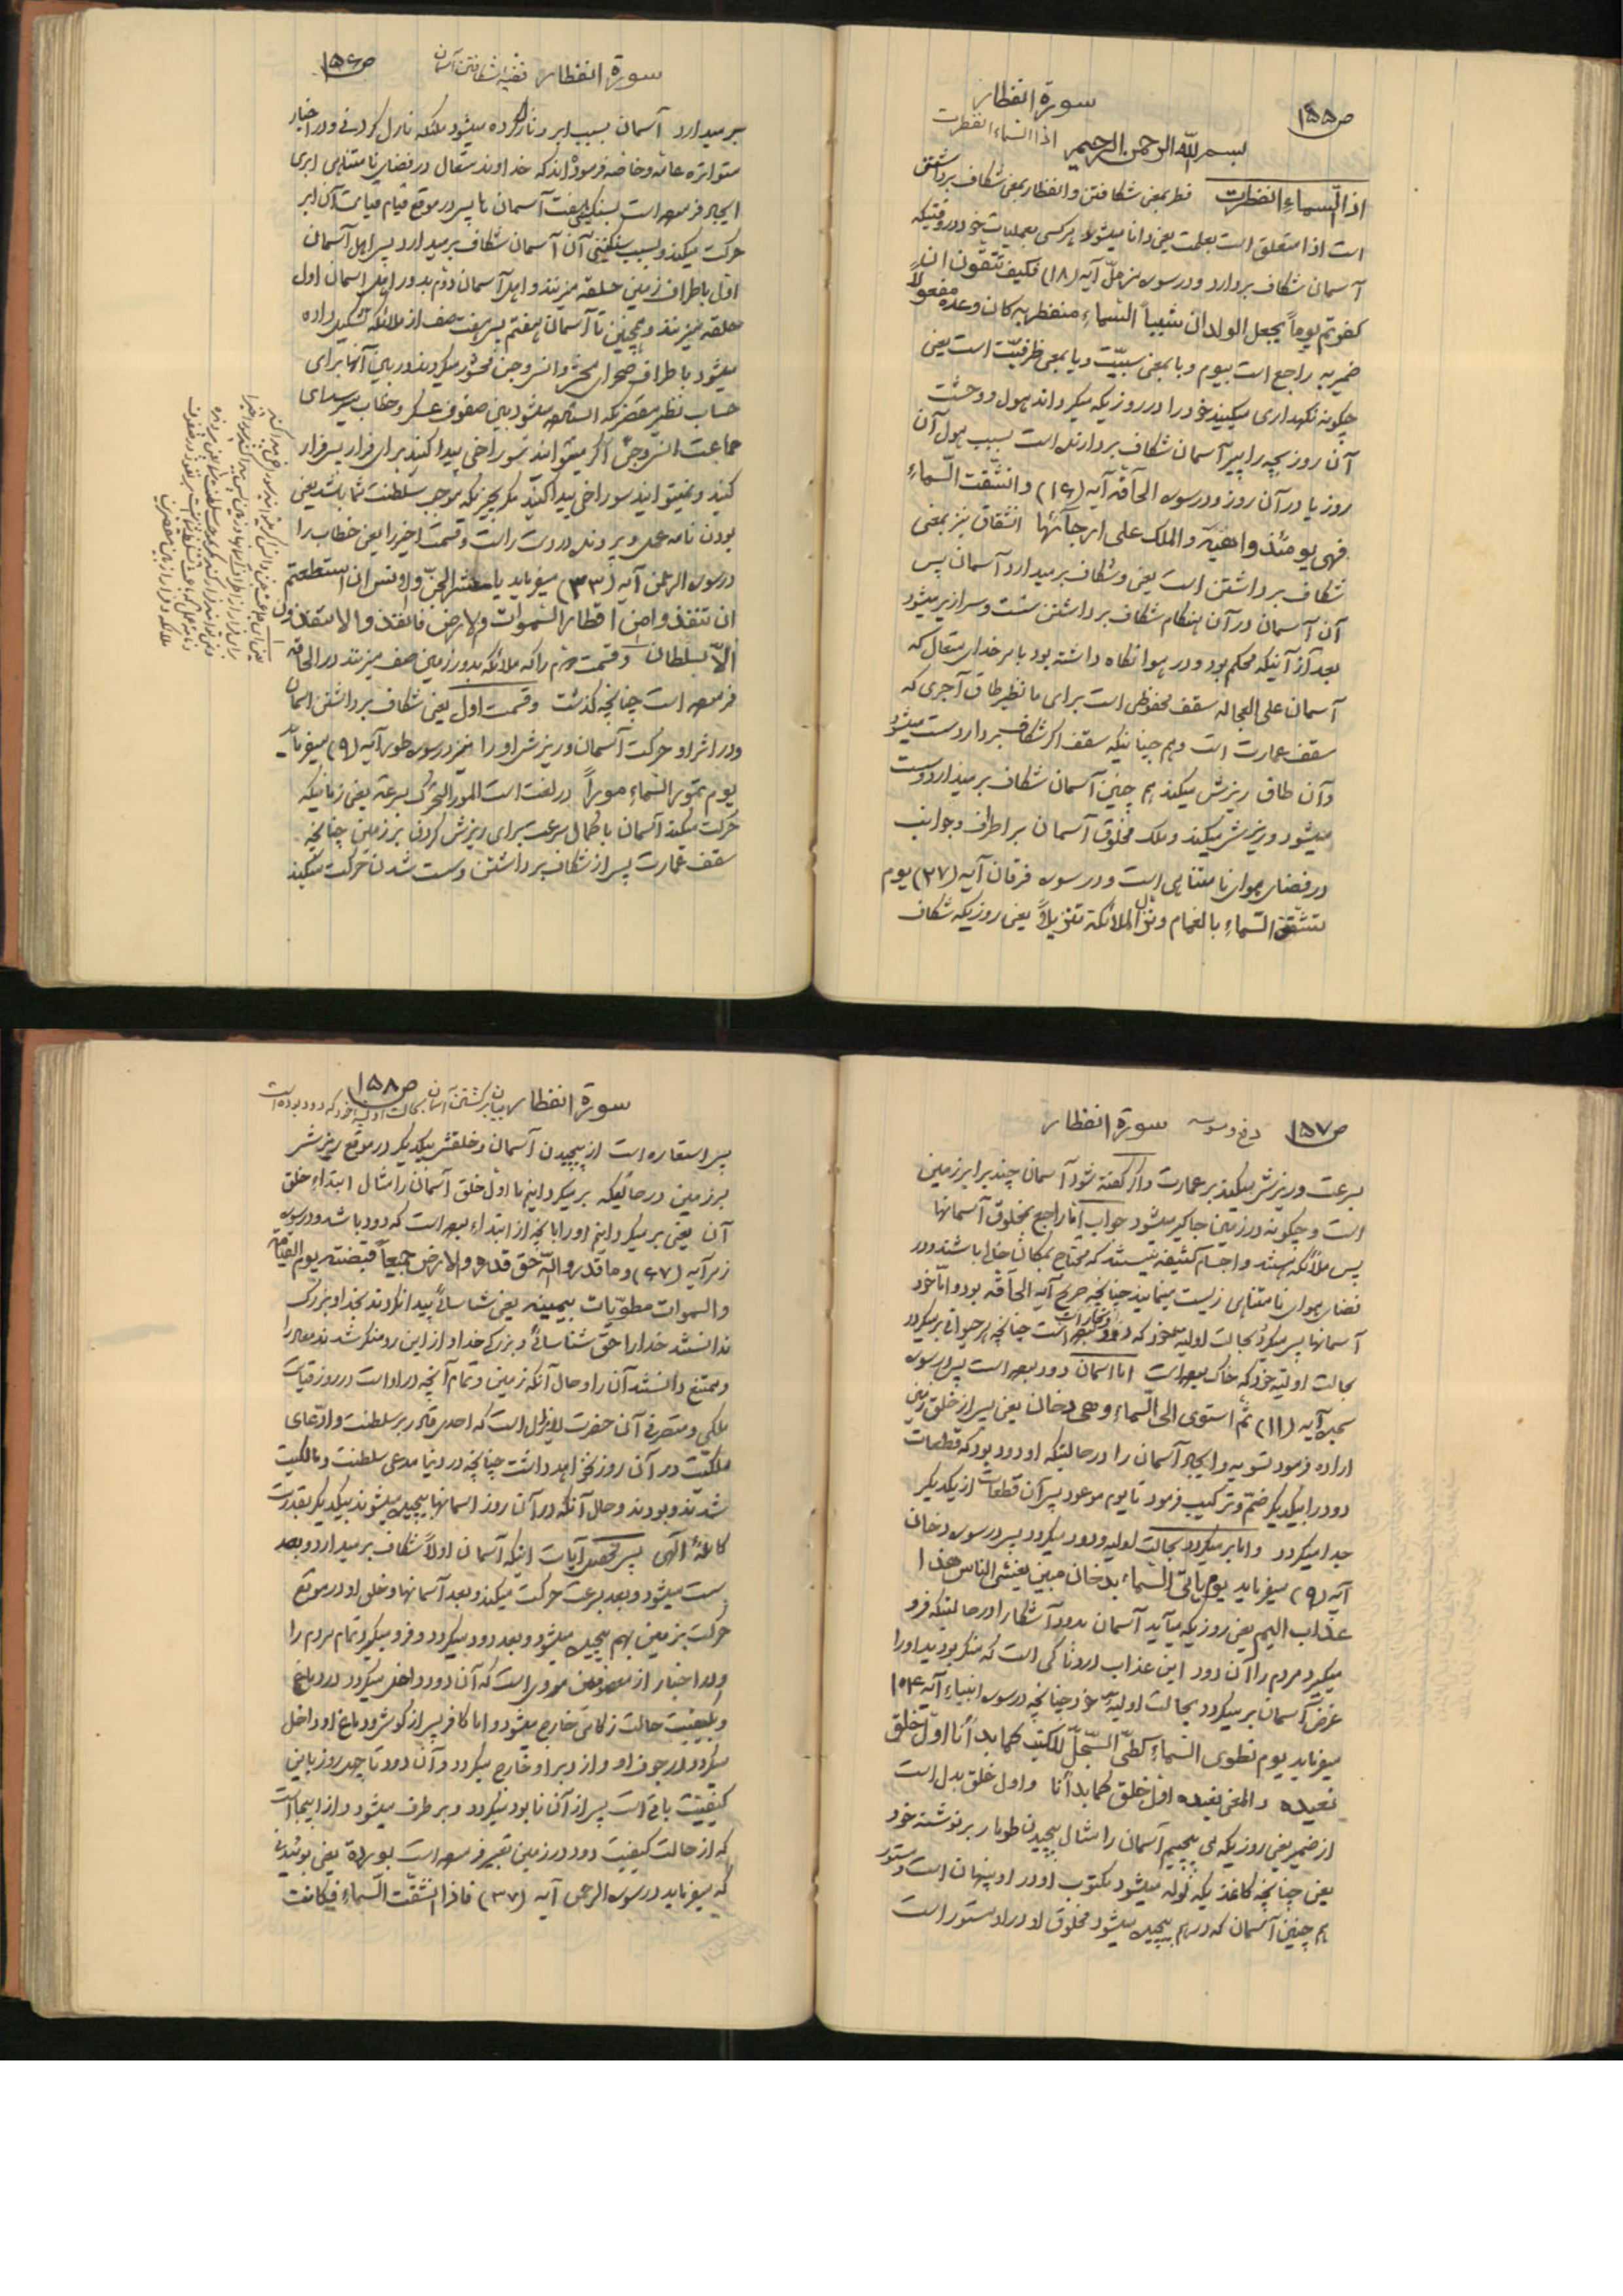 ص۱۵۵
سورة انفطار
اذا السماء انفطرت
بسم الله الرحمن الرحیم
اذا السماء انفطرت فطر بمعنی شکافتن و انفطار بمعنی شکاف برداشتن
است اذا متعلق است بعلمت یعنی دانا میشود هر کسی بعملیات خود در وقتیکه
آسمان شکاف بردارد و در سوره مزمل آیه (۱۸) فکیف تتقون ان
کفرتم یوماً یجعل الولدان شیباً السماء منفطر به کان وعده مفعولاً
ضمیر به راجع است بیوم و با بمعنی سببیّت و یا بمعنی ظرفیّت است یعنی
چگونه نگهداری میکنید خود را در روزیکه میگرداند هول و وحشت
آن روز بچه را پیر آسمان شکاف بردارنده است بسبب هول آن
روز یا در آن روز و در سوره الحآقه آیه (۱۶) و انشقت السّماء
فهی یومئذ واهیة و الملک علی ارجآئها انشقاق نیز بمعنی
شکاف برداشتن است یعنی و شکاف بر میدارد آسمان پس
آن آسمان در آن هنگام شکاف برداشتن سست و سرازیر میشود
بعد از آنیکه محکم بود و در هوا نگاه داشته بود بامر خدای متعال که
آسمان علی العجاله سقف محفوظی است برای ما نظیر طاق آجری که
سقف عمارت است و هم چنانیکه سقف اگر شکاف بردارد سست میشود
و آن طاق ریزش میکند هم چنین آسمان شکاف بر میدارد و سست
میشود و ریزش میکند و ملک مخلوق آسمان بر اطراف و جوانب
در فضای هوای نامتناهی است و در سوره فرقان آیه (۲۷) یوم
تشقق السّماء بالغمام و نزل الملائکة تنزیلاً یعنی روزیکه شکاف
ص۱۵۶
سورة انفطار قضیه شکافتن آسمان
بر میدارد آسمان بسبب ابر و نازل کرده میشود ملئکه نازل کردنی و در اخبار
متواتره عامه و خاصه فرموده اند که خداوند متعال در فضای نامتناهی ابری
ایجاد فرموده است بسنگینی هفت آسمان تا پس در موقع قیام قیامت آن ابر
حرکت میکند و بسبب سنگینی آن آسمان شکاف بر میدارد پس اهل آسمان
اول باطراف زمین حلقه میزنند و اهل آسمان دوّم بدور اهل اسمان اول
حلقه میزنند و همچنین تا آسمان هفتم پس هفت صف از ملائکه تشکیل داده
میشود باطراف صحرای محشر و انس و جن محشور میگردند در بین آنها برای
حساب نظیر مقصریکه استاده میشود بین صفوف عسکر و خطاب میرسد ای
جماعت انس و جنّ اگر میتوانید سوراخی پیدا کنید برای فرار پس فرار
کنید و نمیتوانید سوراخی پیدا کنید مگر بچیزیکه موجب سلطنت شما باشد یعنی
بودن نامه عمل و پرونده در دست راست و قسمت اخیر را یعنی خطاب را
در سوره الرحمن آیه (۳۳) میفرماید یا معشر الجنّ و الانس ان استطعتم
ان تنفذوا من اقطار السّموات و الارض فانفذوا لا تنفذون
الاّ بسلطان و قسمت دوم را که ملائکه بدور زمین صف میزنند در الحاقه
فرموده است چنانچه گذشت و قسمت اول یعنی شکاف برداشتن اسمان
و در اثر او حرکت آسمان و ریزش او را نیز در سوره طور آیه (۹) میفرماید
یوم تمور السّماء موراً در لغت است المور التحرک بسرعة یعنی زمانیکه
حرکت میکند آسمان با کمال سرعت برای ریزش کردن بر زمین چنانچه
سقف عمارت پس از شکاف برداشتن و سست شدن حرکت میکند
ص۱۵۷
سورة انفطار
بسرعت و ریزش میکند بر عمارت و اگر گفته شود آسمان چند برابر زمین
است و چگونه در زمین جاگیر میشود جواب اما راجع بمخلوق آسمانها
پس ملائکه هستند و اجسام کثیفه نیستند که محتاج بمکان باشند و در
فضای هوای نامتناهی زیست مینمایند چنانچه صریح آیه الحآقه بود و اما خود
آسمانها پس میگردد بحالت اولیه خود که دود و بخارات است چنانچه هر حیوانی بر میگردد
بحالت اولیّه خود که خاک بوده است اما اسمان دود بوده است پس در سوره
سجده آیه (۱۱) ثمّ استوی الی السّماء و هی دخان یعنی پس از خلق زمین
اراده فرمود تسویه و ایجاد آسمان را در حالتیکه او دود بود که قطعات
دود را بیکدیگر ضمّ و ترکیب فرمود تا یوم موعود پس آن قطعات از یکدیگر
جدا میگردد و اما بر میگردد بحالت اولیه و دود میگردد پس در سوره دخان
آیه (۹) میفرماید یوم یاتی السّماء بدخان مبین یغشی الناس هذا
عذاب الیم یعنی روزیکه میآید آسمان بدود آشکارا در حالتیکه فرو
میگیرد مردم را آن دود این عذاب دردناکی است که منکر بودید او را
غرض آسمان بر میگردد بحالت اولیه خود چنانچه در سوره انبیاء آیه ۱۰۴
میفرماید یوم نطوی السّماء کطیّ السّجلّ للکتب کما بدأنا اوّل خلق
نعیده و المعنی نعیده اوّل خلق کما بدأنا و اول خلق بدل است
از ضمیر یعنی روزیکه می پیچیم آسمان را مثال پیچیدن طومار بر نوشته خود
یعنی چنانچه کاغذیکه لوله میشود مکتوب او در او پنهان است و مستور
هم چنین آسمان که در هم پیچیده میشود مخلوق او در او مستور است
ص۱۵۸
سورة انفطار بیان برگشتن آسمان بحالت اولیه خود که دود بوده است
پس استعاره است از پیچیدن آسمان و خلقش بیکدیگر در موقع ریزش
بر زمین در حالتیکه بر میگردانیم ما اول خلق آسمان را مثال ابتداء خلق
آن یعنی بر میگردانیم او را بآنچه از ابتداء بوده است که دود باشد و در سوره
زمر آیه (۶۷) و ما قدروا اللّه حق قدره و الارض جمیعاً قبضته یوم القیامة
و السموات مطویّات بیمینه یعنی شناسائی پیدا نکردند بخدا و بزرگ
ندانستند خدا را حق شناسائی و بزرگی خدا و از این رو منکر شدند معاد را
و ممتنع دانستند آن را و حال آنکه زمین و تمام آنچه در او است در روز قیامت
ملکی و متصرفی آن حضرت لایزال است که احدی قادر بر سلطنت و ادّعای
ملکیّت در آن روز نخواهد داشت چنانچه در دنیا مدعی سلطنت و مالکیت
شدند و بودند و حال آنکه در آن روز اسمانها پیچیده میشوند بیکدیگر بقدرت
کامله الهی پس محصل آیات اینکه آسمان اولاً شکاف بر میدارد و بعد
سست میشود و بعد بسرعت حرکت میکند و بعد آسمانها و خلق او در موقع
حرکت بزمین بهم پیچیده میشود و بعد دود میگردد و فرو میگیرد تمام مردم را
و در اخبار از معصومین مروی است که آن دود داخل میگردد در دماغ
و بکیفیت حالت زکامی خارج میشود و اما کافر پس از گوش و دماغ او داخل
میگردد در جوف او و از دبر او خارج میگردد و آن دود تا چهل روز باین
کیفیّت باقی است پس از آن نابود میگردد و بر طرف میشود و از اینجا است
که از حالت کیفیت دود در زمین تعبیر فرموده است بوردة یعنی
که میفرماید در سوره الرحمن آیه (۳۷) فاذا انشقّت السّماء فکانت